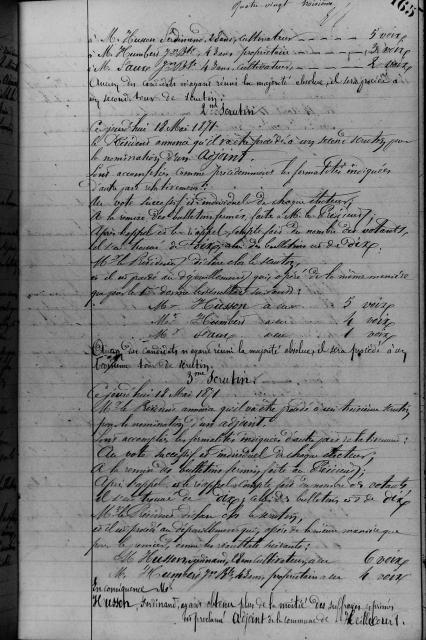 quatre vingt troisième
165
à M. Husson Ferdinand, cultivateur 5 voix
à M. Humbert Jn Bte, propriétaire 3 voix
à M. Jn Bte, cultivateur, 2 voix
Aucun des candidats n'ayant réuni la majorité absolue, il sera procédé à
un second tour de scrutin.
2me Scrutin
Cejourd'hui 18 Mai 1871
le Président annonce qu'il va être procédé à un second scrutin pour
la nomination d'un Adjoint.
Sont accomplies comme précédemment les formalités indiquées
d'autre part
Au vote successif et individuel de chaque électeur,
A la remise des bulletins fermés, faite à M. le Président,
Après l'appel et le réappel, compte fait du nombre des votants,
il s'est trouvé de dix, celui des bulletins est de dix.
M. le Président déclare clos le scrutin,
et il est procédé au dépouillement qui, opéré de la même manière
que pour le 1er donne les résultats suivants :
M. Husson a eu 5 voix
M. Humbert a eu 4 voix
M. a eu 1 voix
Aucun des candidats n'ayant réuni la majorité absolue, il sera procédé à un
troisième tour de scrutin.
3me Scrutin.
Cejourd'hui 18 Mai 1871
M. le Président annonce qu'il va être procédé à un troisième scrutin
pour la nomination d'un adjoint.
Sont accomplies les formalités indiquées d'autre part
Au vote successif et individuel de chaque électeur,
A la remise des bulletins fermés, faite au Président,
Après l'appel et le réappel, compte fait du nombre des votants
il s'est trouvé de dix, celui des bulletins est de dix
M. le Président déclare clos le scrutin,
et il est procédé au dépouillement qui, opéré de la même manière que
pour le premier, donne les résultats suivants :
M. Husson Ferdinand, cultivateur, a eu 6 voix
M. Humbert Jn Bte, propriétaire a eu 4 voix
En conséquence, Mr
Husson, Ferdinand, ayant obtenu plus de la moitié des suffrages exprimés
est proclamé Adjoint de la commune de